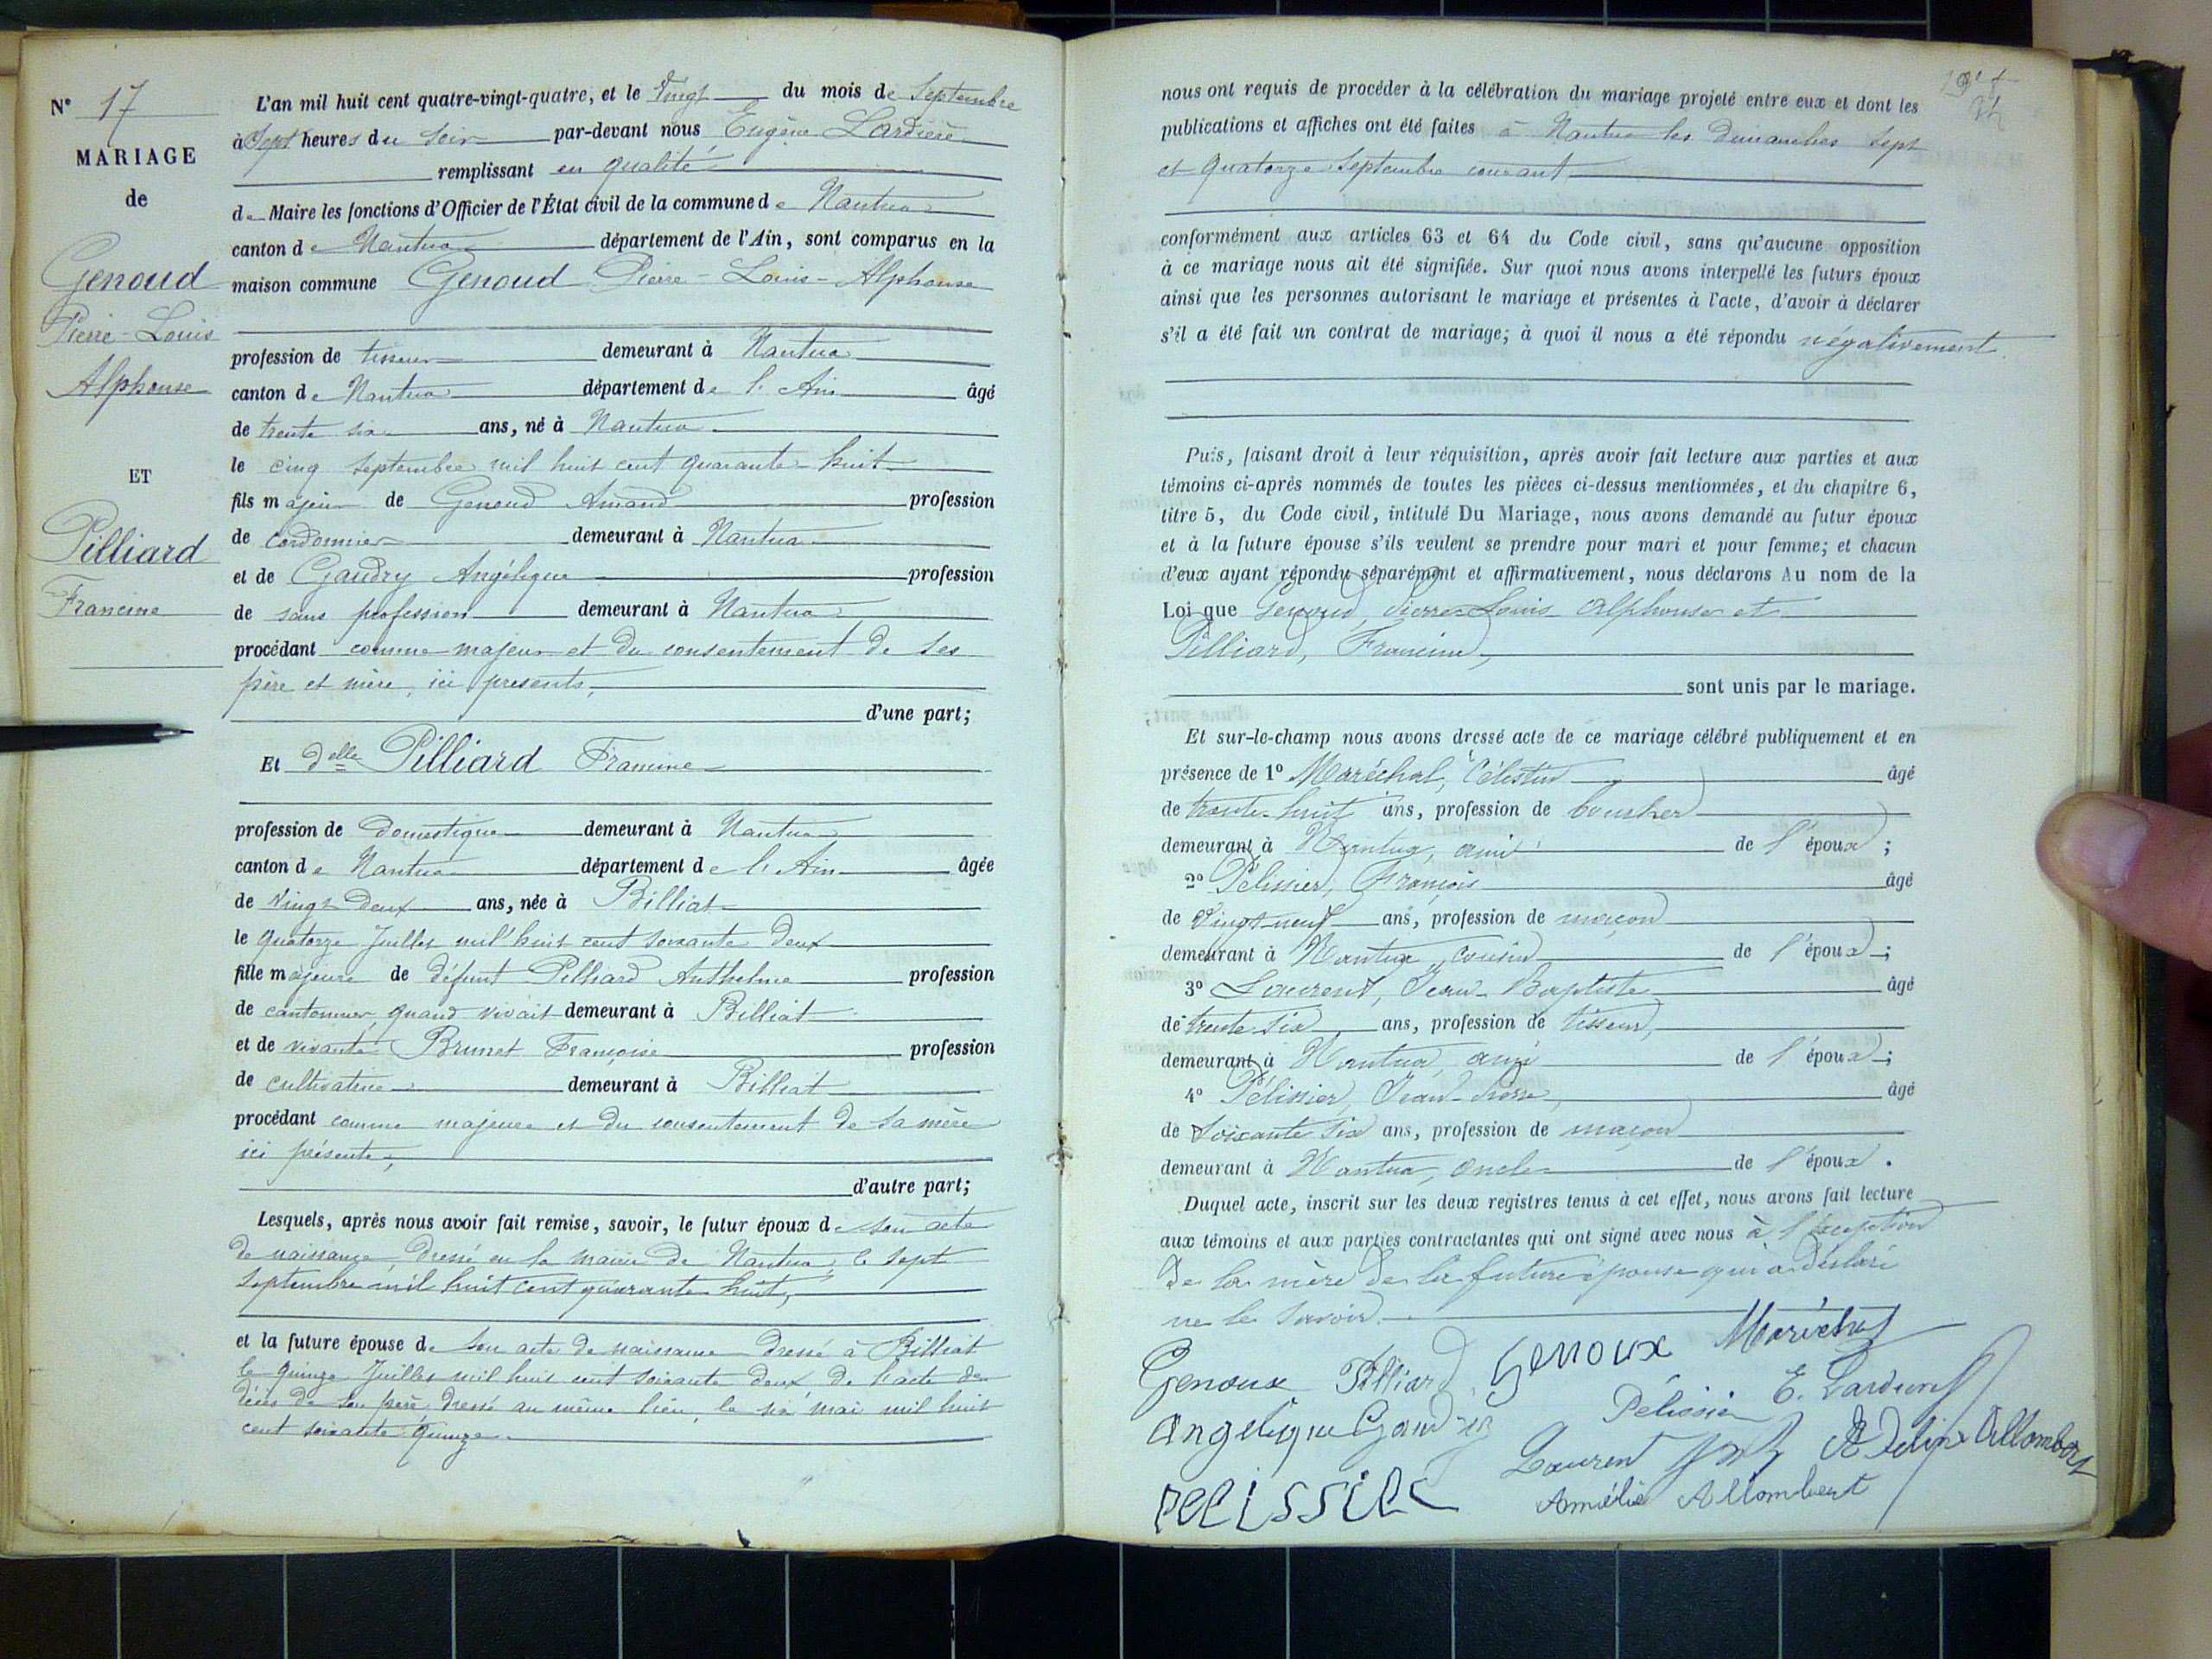 N° 17
MARIAGE
de
Genoud
Pierre-Louis
Alphonse
ET
Pilliard
Francine
L'an mil huit cent quatre-vingt-quatre, et le Vingt du mois de Septembre
à Sept heures du Soir par-devant nous Eugène Lardière
remplissant en qualité
de Maire les fonctions d'Officier de l'État civil de la commune de Nantua
canton de Nantua département de l'Ain, sont comparus en la
maison commune Genoud Pierre-Louis-Alphonse
profession de tisseur demeurant à Nantua
canton de Nantua département de l'Ain âgé
de trente six ans, né à Nantua
le cinq septembre mil huit cent quarante-huit
fils majeur de Genoud Amand profession
de cordonnier demeurant à Nantua
et de Gaudry Angélique profession
de sans profession demeurant à Nantua
procédant comme majeur et du consentement de ses
père et mère, ici présents,
d'une part;
Et Delle Pilliard Francine
profession de domestique demeurant à Nantua
canton de Nantua département de l'Ain âgée
de Vingt Deux ans, née à Billiat
le quatorze Juillet mil huit cent soixante deux
fille majeure de défunt Pilliard Anthelme profession
de cantonnier quand vivait demeurant à Billiat
et de vivante Brunet Françoise profession
de cultivatrice demeurant à Billiat
procédant comme majeure et du consentement de sa mère
ici présente,
d'autre part;
Lesquels, après nous avoir fait remise, savoir, le futur époux de son acte
de naissance, dressé en la mairie de Nantua, le sept
septembre mil huit cent quarante huit,
et la future épouse de son acte de naissance dressé à Billiat
le quinze Juillet mil huit cent soixante deux, de l'acte de
décès de son père dressé au même lieu, le six mai mil huit
cent soixante quinze.
nous ont requis de procéder à la célébration du mariage projeté entre eux et dont les
publications et affiches ont été faites à Nantua les Dimanches sept
et quatorze Septembre courant
conformément aux articles 63 et 64 du Code civil, sans qu'aucune opposition
à ce mariage nous ait été signifiée. Sur quoi nous avons interpellé les futurs époux
ainsi que les personnes autorisant le mariage et présentes à l'acte, d'avoir à déclarer
s'il a été fait un contrat de mariage; à quoi il nous a été répondu négativement.
Puis, faisant droit à leur réquisition, après avoir fait lecture aux parties et aux
témoins ci-après nommés de toutes les pièces ci-dessus mentionnées, et du chapitre 6,
titre 5, du Code civil, intitulé Du Mariage, nous avons demandé au futur époux
et à la future épouse s'ils veulent se prendre pour mari et pour femme; et chacun
d'eux ayant répondu séparément et affirmativement, nous déclarons Au nom de la
Loi que Genoud, Pierre-Louis-Alphonse et
Pilliard, Francine,
sont unis par le mariage.
Et sur-le-champ nous avons dressé acte de ce mariage célébré publiquement et en
présence de 1° Maréchal, Célestin âgé
de trente-huit ans, profession de boucher
demeurant à Nantua, ami de l'époux;
2° Pélissier, François âgé
de Vingt-neuf ans, profession de maçon
demeurant à Nantua, cousin de l'époux;
3° Laurent, Jean-Baptiste âgé
de trente six ans, profession de tisseur,
demeurant à Nantua, ami de l'époux;
4° Pélissier, Jean-Pierre, âgé
de Soixante Six ans, profession de maçon
demeurant à Nantua, oncle de l'époux.
Duquel acte, inscrit sur les deux registres tenus à cet effet, nous avons fait lecture
aux témoins et aux parties contractantes qui ont signé avec nous à l'exception
de la mère de la future épouse qui a déclaré
ne le savoir.
Genoux Pilliard Genoux Maréchal
Angélique Gaudry Pélissier E. Lardière
Laurent Adeline Allombert
PELISSIER Amélie Allombert